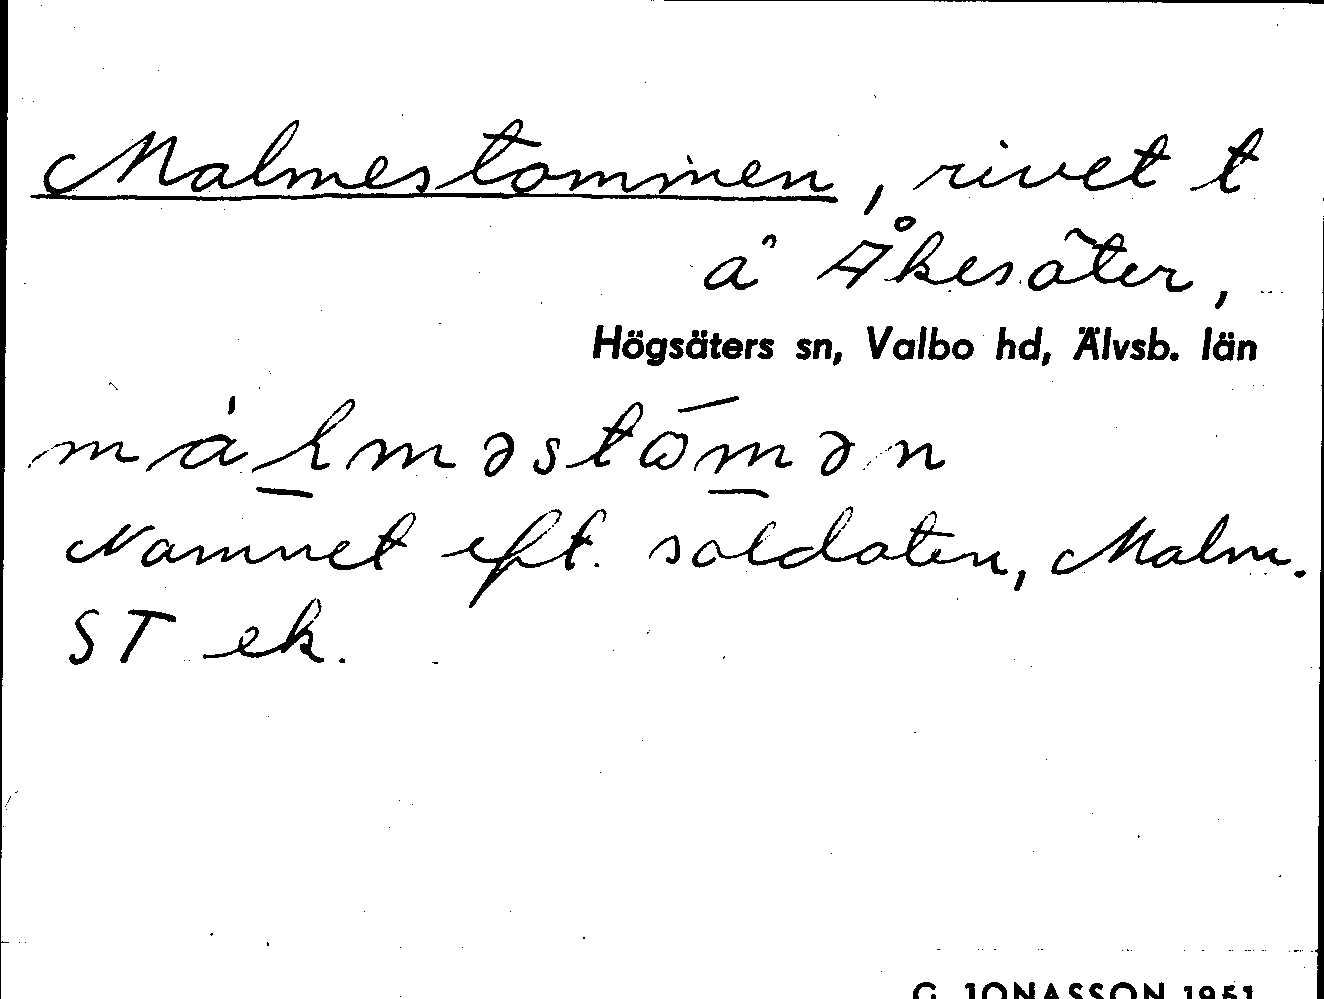 Malmestommen, rivet t
å Åkesäter,
Högsäters sn, Valbo hd, Älvsb. län
Namnet eft. soldaten, Malm.
ST ek.
G. JONASSON 1951